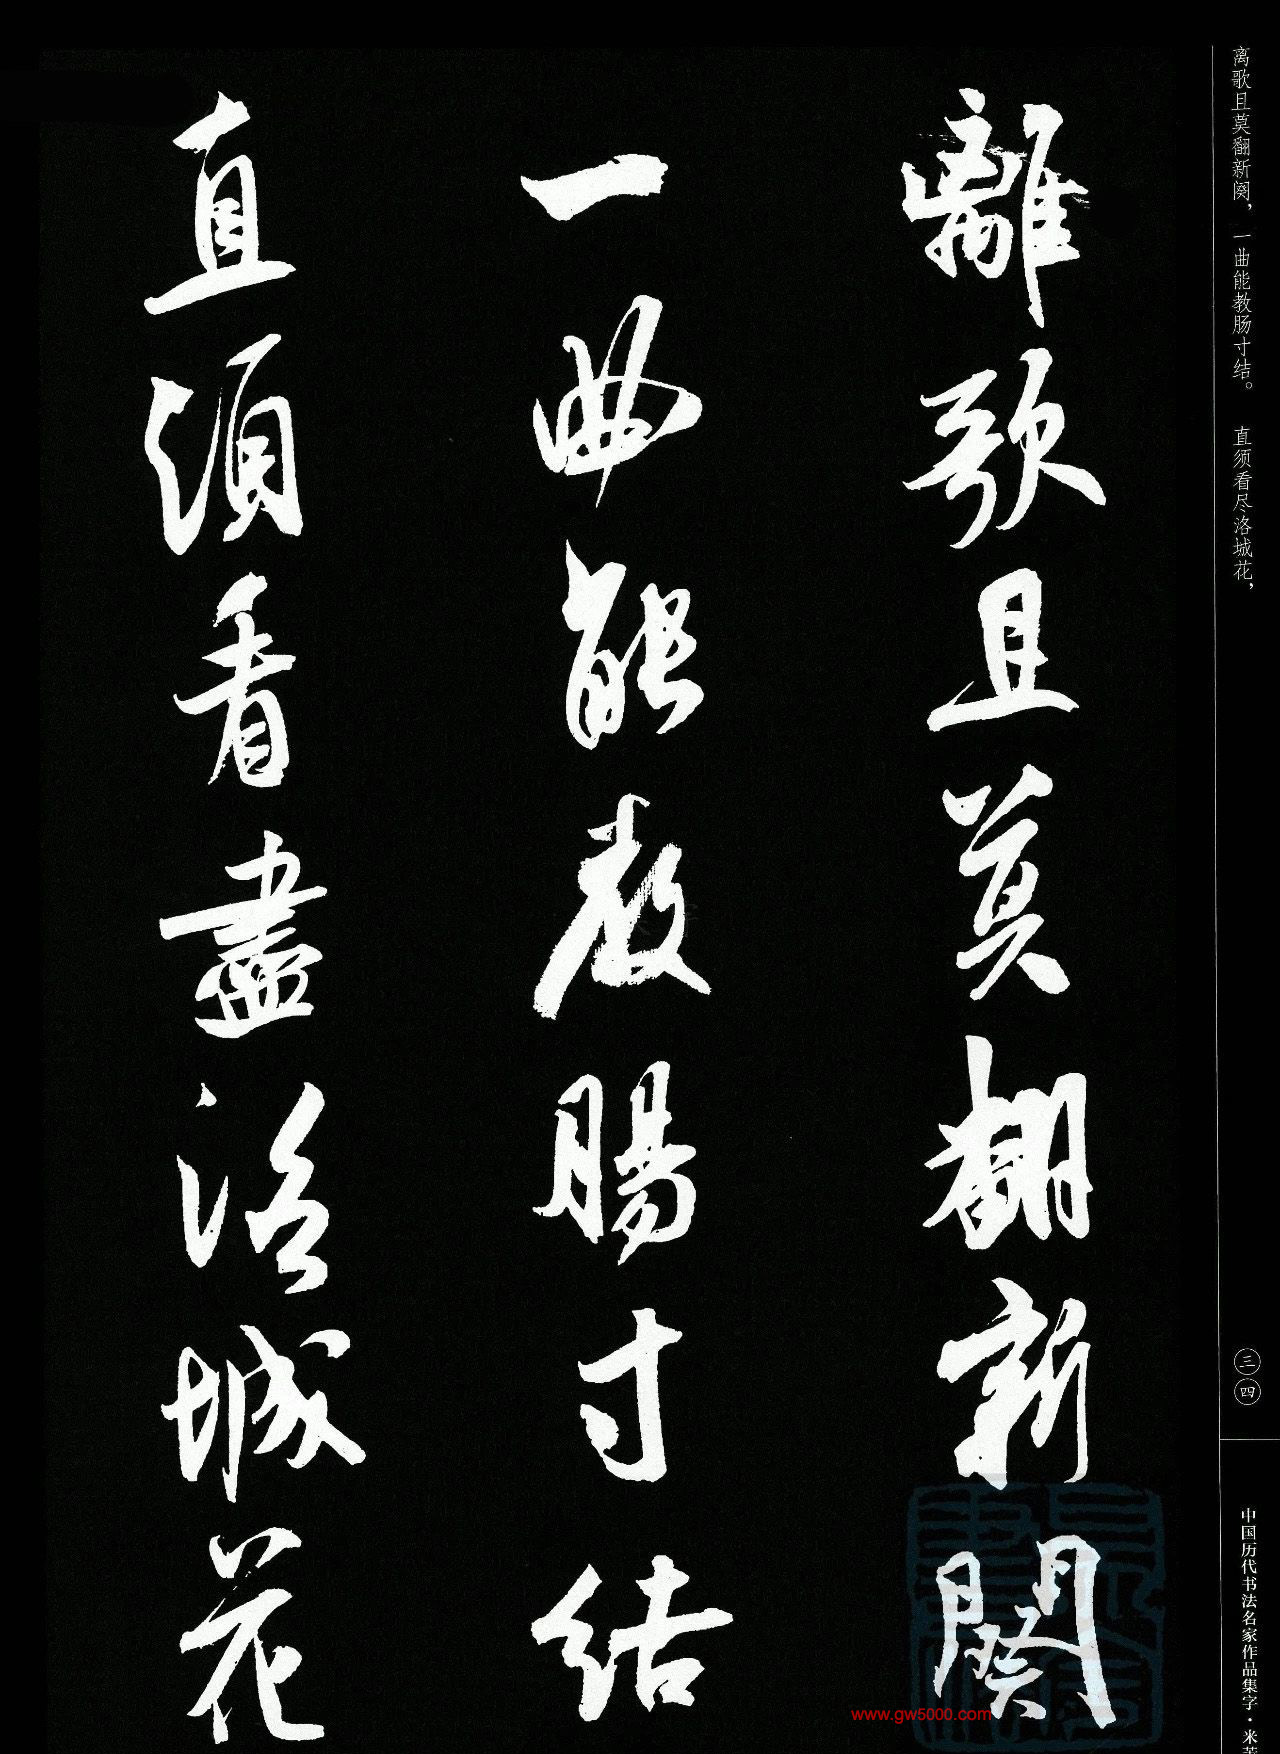 离歌且莫翻新阕，一曲能教肠寸结。 直须看尽洛城花，
三四
中国历代书法名家作品集字·米芾
離歌且莫翻新闋
一曲能教腸寸結
直須看盡洛城花
www.gw5000.com